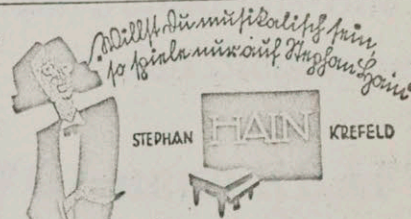 Willst Du musikalisch sein,
so spiele nur auf Stephan Hain
STEPHAN HAIN KREFELD